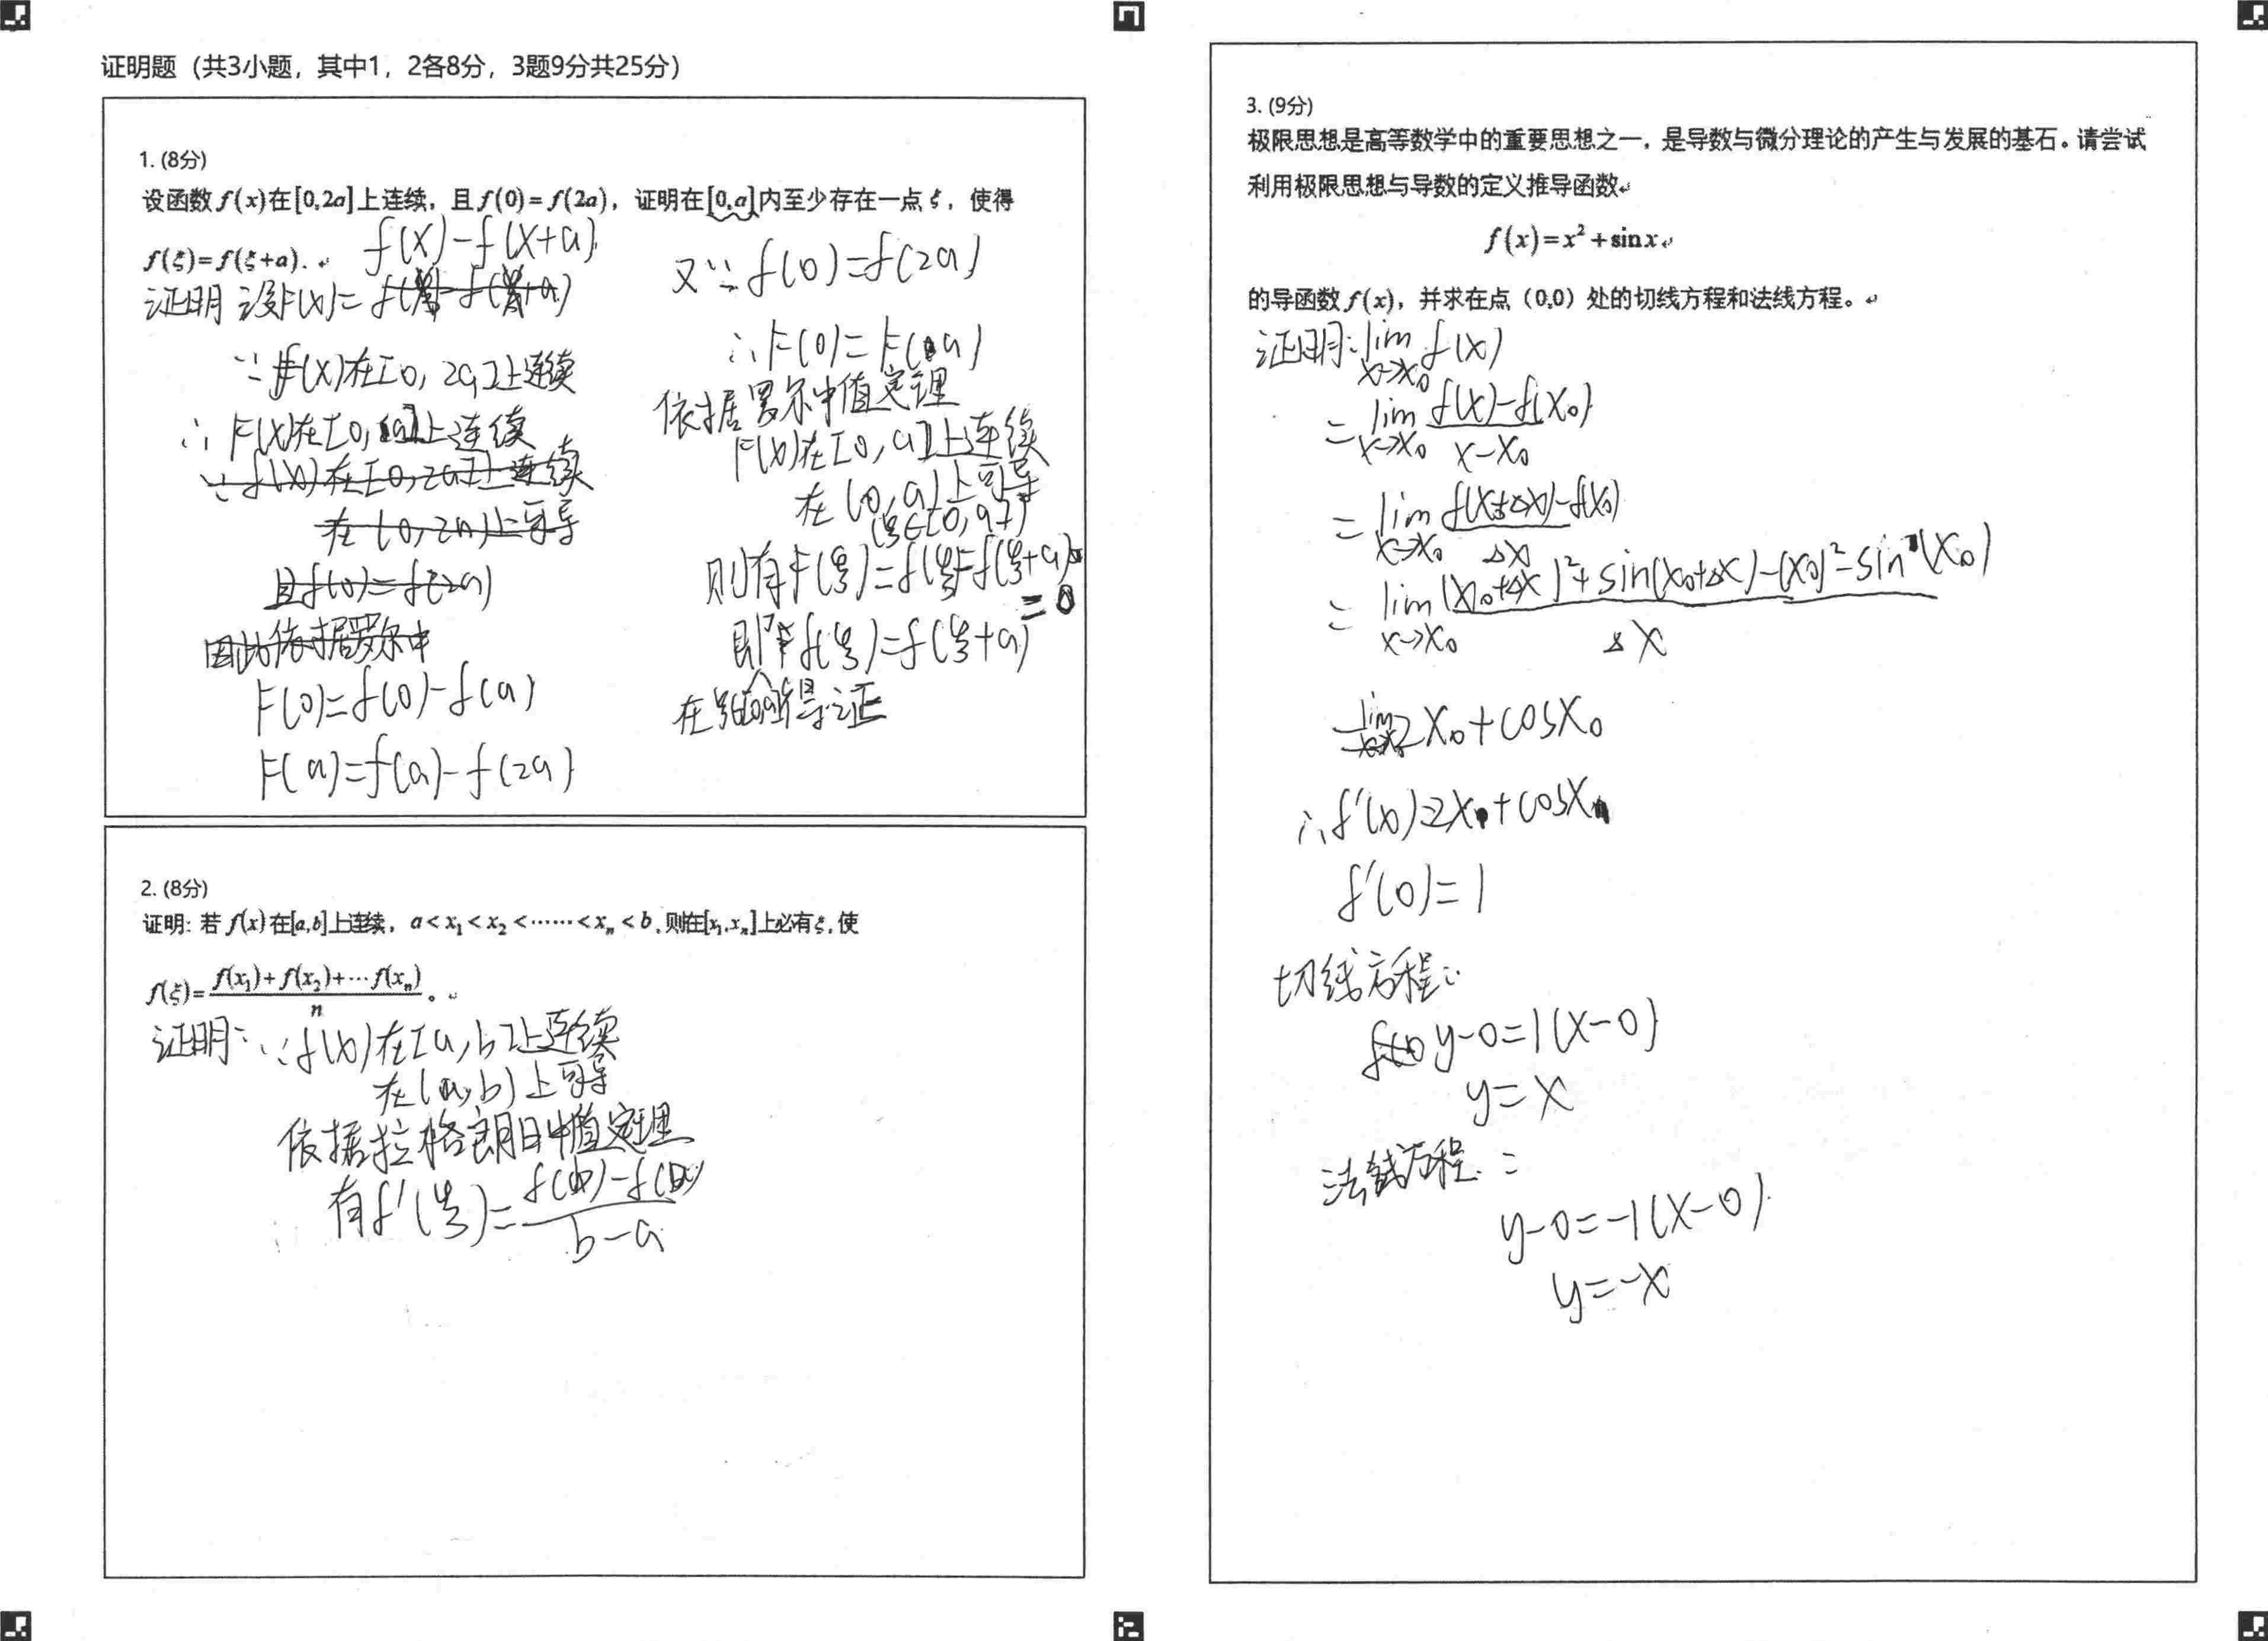 证明题（共3小题，其中1，2各8分，3题9分共25分）
1. (8分)
设函数 f(x)在[0,2a]上连续，且 f(0)= f(2a)，证明在[0,a]内至少存在一点 ξ，使得
f(ξ)=f(ξ+a).
f(x)-f(x+a)
证明 设F(x)=
∵ f(x)在[0, 2a]上连续
∴ F(x)在[0, a]上连续
∵ f(x)在[0,2a]上连续
在(0,2a)上可导
且f(0)=f(2a)
因此依据罗尔中
F(0)=f(0)-f(a)
F(a)=f(a)-f(2a)
又∵ f(0)=f(2a)
∴ F(0)=F(a)
依据罗尔中值定理
F(x)在[0,a]上连续
在(0,a)上可导
(ξ∈[0,a])
则有F(ξ)=f(ξ)-f(ξ+a)
=0
即 f(ξ)=f(ξ+a)
得证
2. (8分)
证明: 若 f(x)在[a,b]上连续，a<x₁<x₂<……<xₙ<b, 则在[x₁,xₙ]上必有ξ, 使
f(ξ)= (f(x₁)+f(x₂)+…f(xₙ))/n 。
证明: ∵f(x)在[a,b]上连续
在(a,b)上可导
依据拉格朗日中值定理
有f'(ξ)= /(b-a)
3. (9分)
极限思想是高等数学中的重要思想之一，是导数与微分理论的产生与发展的基石。请尝试
利用极限思想与导数的定义推导函数
f(x)=x²+sinx
的导函数 f(x)，并求在点（0,0）处的切线方程和法线方程。
证明: lim x→x₀ f(x)
= lim x→x₀ (f(x)-f(x₀))/(x-x₀)
= lim x→x₀ (f(x₀+△x)-f(x₀))/△x
= lim x→x₀ ((x₀+△x)²+sin(x₀+△x)-(x₀)²-sin(x₀))/△x
=2x₀+cosx₀
∴f'(x)=2x+cosx
f'(0)=1
切线方程:
y-0=1(x-0)
y=x
法线方程:
y-0=-1(x-0)
y=-x